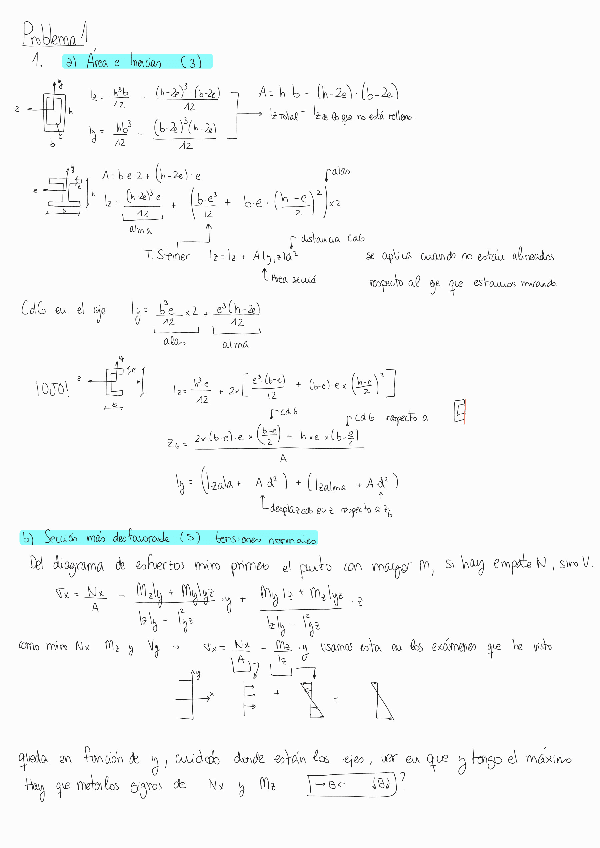 Problema 1
1. a) Área e Inercias (3)
Iz = h³b/12 - (h-2e)³ (b-2e)/12
A = h·b - (h-2e)·(b-2e)
→ Iz total - Iz de lo que no está relleno
Iy = hb³/12 - (b-2e)³(h-2e)/12
A = b·e·2 + (h-2e)·e
alas
Iz = (h-2e)³e/12 + (b·e³/12 + b·e·(h-e/2)²)x2
alma
distancia CdG
T. Steiner Iz = Iz + A(y,z)d²
se aplica cuando no están alineados
Área sección
respecto al eje que estamos mirando
CdG en el eje Iy = b³e/12 x2 + e³(h-2e)/12
alas alma
¡OJO!
Iz = h³e/12 + 2x[e³(b-e)/12 + (b-e)ex(h-e/2)²]
CdG CdG respecto a
ZG = 2x(b-e)·e×(b-e/2) - h×e×(b-e/2)/A
Iy = (Izala + Ad²) + (Izalma + Ad²)
desplazado en z respecto a
b) Sección más desfavorable (5) tensiones normales
Del diagrama de esfuerzos miro primero el punto con mayor M, si hay empate N, sino V.
σx = Nx/A - MzIy + MyIyz/IzIy - I²yz · y + MyIz + MzIyz/IzIy - I²yz · z
como miro Nx Mz y Vy → σx = Nx/A - Mz/Iz · y (usamos esta en los exámenes que he visto
queda en función de y, cuidado donde están los ejes, ver en que y tengo el máximo
Hay que meter los signos de Nx y Mz